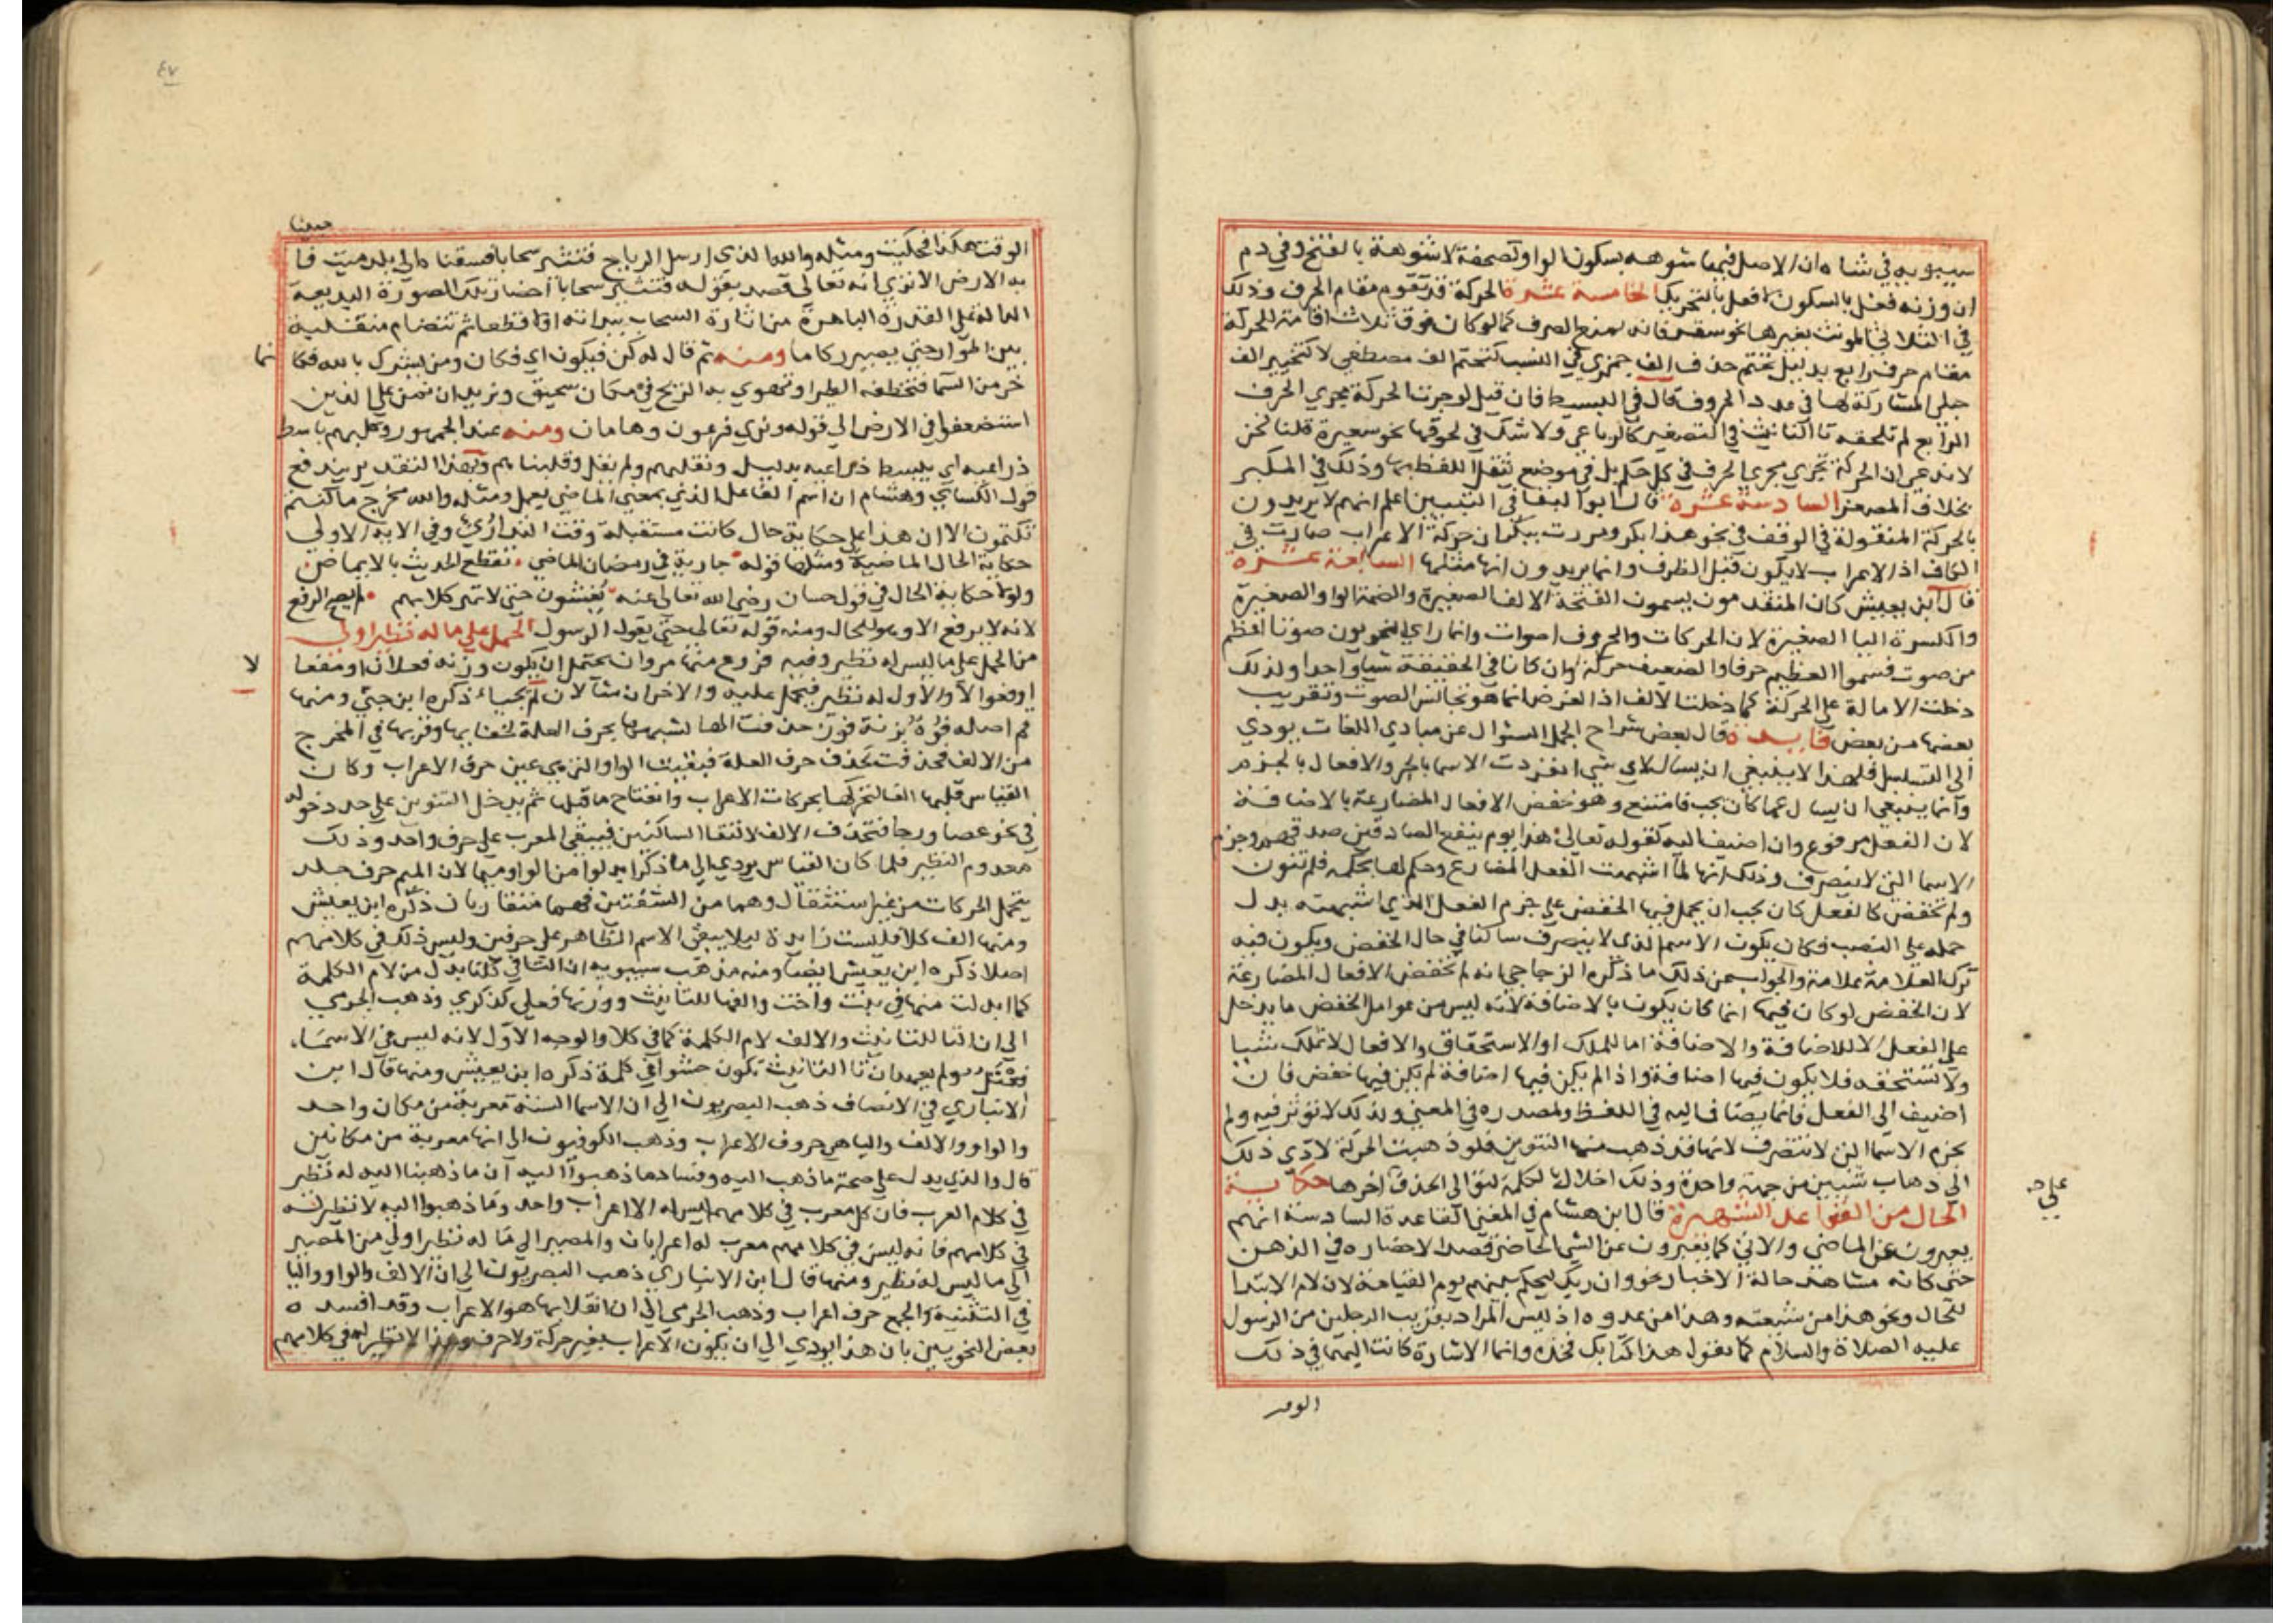 سيبويه في شاه ان الاصل فيها شوهه بسكون الواو كصحفة لا شوهة بالفتح وفي دم
ان وزنه فعل بالسكون لا فعل بالتحريك الخامسة عشرة الحركة قد تقوم مقام الحرف وذلك
في الثلاثي المونث بغيرها نحو سقر فانه يمنع الصرف كما لو كان فوق ثلاث اقامة للحركة
مقام حرف رابع بدليل تحتم حذف الف جمزي في النسب كتحتم الف مصطفي لا كتخيير الف
حبلي المشاركة لها في عدد الحروف قال في البسيط فان قيل لو جرت الحركة مجري الحرف
الرابع لم تلحقه تا التانيث في التصغير كالرباعي ولا شك في لحوقها نحو سقيرة قلنا نحن
لا ندعي ان الحركة تجري مجري الحرف في كل حكم بل في موضع يثقل اللفظ بها وذلك في المكبر
بخلاف المصغر السادسة عشرة قال ابو البقا في التبيين اعلم انهم لا يريدون
بالحركة المنقولة في الوقف في نحو هذا بكر ومررت ببكر ان حركة الاعراب صارت في
الكاف اذ الاعراب لا يكون قبل الطرف وانما يريدون انها مثلها السابعة عشرة
قال ابن يعيش كان المتقدمون يسمون الفتحة الالف الصغيرة والضمة الواو الصغيرة
والكسرة اليا الصغيرة لان الحركات والحروف اصوات وانما راي النحويون صوتا اعظم
من صوت فسموا العظيم حرفا والضعيف حركة وان كانا في الحقيقة شيا واحدا ولذلك
دخلت الامالة علي الحركة كما دخلت الالف اذ الغرض انما هو تجانس الصوت وتقريب
بعضها من بعض فايدة قال بعض شراح الجمل السوال عن مبادي اللغات يودي
الي التسلسل فلهذا لا ينبغي ان يسال لاي شي انفردت الاسما بالجر والافعال بالجزم
وانما ينبغي ان يسال عما كان يجب فامتنع وهو خفض الافعال المضارعة بالاضافة
لان الفعل مرفوع وان اضيف اليه كقوله تعالي هذا يوم ينفع الصادقين صدقهم وجزم
الاسما التي لا تنصرف وذلك انها لما اشبهت الفعل المضارع وحكم لها بحكمه فلم تنون
ولم تخفض كالفعل كان يجب ان يحمل فيها الخفض علي جزم الفعل الذي اشبهته بدل
حمله علي النصب فكان يكون الاسم الذي لا ينصرف ساكنا في حال الخفض ويكون فيه
ترك العلامة علامة والجواب عن ذلك ما ذكره الزجاجي انه لم تخفض الافعال المضارعة
لان الخفض لو كان فيها انما كان يكون بالاضافة لانه ليس من عوامل الخفض ما يدخل
علي الفعل الا الاضافة والاضافة اما للملك او الاستحقاق والافعال لا تملك شيا
ولا تستحقه فلا يكون فيها اضافة واذا لم يكن فيها اضافة لم يكن فيها خفض فان
اضيف الي الفعل فانما يضاف اليه في اللفظ ولمصدره في المعني ولذلك لا تؤثر فيه ولم
تجزم الاسما التي لا تنصرف لانها قد ذهب منها التنوين فلو ذهبت الحركة لادي ذلك
الي ذهاب شيين من جهة واحدة وذلك اخلال بالكلمة لتوالي الحذف علي اخرها حكاية
الحال من القواعد الشهيرة قال ابن هشام في المغني القاعدة السادسة انهم
يعبرون عن الماضي والاتي كما يعبرون عن الشي الحاضر قصدا لاحضاره في الذهن
حتي كانه مشاهد حالة الاخبار نحو وان ربك ليحكم بينهم يوم القيامة لان لام الابتدا
للحال ونحو هذا من شيعته وهذا من عدوه اذ ليس المراد تقريب الرجلين من الرسول
عليه الصلاة والسلام كما تقول هذا كتابك فخذه وانما الاشارة كانت اليهما في ذلك
الوقت
٤٧
الوقت هكذا فحكيت ومثله والله الذي ارسل الرياح فتثير سحابا فسقناه الي بلد ميت فاحيينا
به الارض الا تري انه تعالي قصد بقوله فتثير سحابا احضار تلك الصورة البديعة
الدالة علي القدرة الباهرة من اثارة السحاب تبدو اولا قطعا ثم تتضام متقلبة
بين اطوار حتي يصير ركاما ومنه ثم قال له كن فيكون اي فكان ومن يشرك بالله فكانما
خر من السما فتخطفه الطير او تهوي به الريح في مكان سحيق ونريد ان نمن علي الذين
استضعفوا في الارض الي قوله ونري فرعون وهامان ومنه عند الجمهور وكلبهم باسط
ذراعيه اي يبسط ذراعيه بدليل ونقلبهم ولم يقل وقلبناهم وبهذا التقدير يندفع
قول الكسائي وهشام ان اسم الفاعل الذي بمعني الماضي يعمل ومثله والله مخرج ما كنتم
تكتمون الا ان هذا علي حكاية حال كانت مستقبلة وقت التداري وفي الاية الاولي
حكاية الحال الماضية ومثلها قوله جارية في رمضان الماضي تقطع الحديث بالايماض
ولولا حكاية الحال في قول حسان رضي الله تعالي عنه يغشون حتي لا تهر كلابهم لم يصح الرفع
لانه لا يرفع الا وهو للحال ومنه قوله تعالي حتي يقول الرسول الحمل علي ما له نظير اولي
من الحمل علي ما ليس له نظير وفيه فروع منها مروان يحتمل ان يكون وزنه فعلان او مفعالا
او فعوالا والاول له نظير فيحمل عليه والاخران مثالان لم يجيا ذكره ابن جني ومنها
فم اصله فوه بزنة فوز حذفت الها لشبهها بحرف العلة لخفايها وقربها في المخرج
من الالف فحذفت كحذف حرف العلة فبقيت الواو التي هي عين حرف الاعراب وكان
القياس قلبها الفا لتحركها بحركات الاعراب وانفتاح ما قبلها ثم يدخل التنوين علي حد دخوله
في نحو عصا ورحا فتحذف الالف لالتقا الساكنين فيبقي المعرب علي حرف واحد وذلك
معدوم النظير فلما كان القياس يودي الي ما ذكر ابدلوا من الواو ميما لان الميم حرف جلد
يتحمل الحركات من غير استثقال وهما من الشفتين فهما متقاربان ذكره ابن يعيش
ومنها الف كلا فليست زايدة ليلا يبقي الاسم الظاهر علي حرفين وليس ذلك في كلامهم
اصلا ذكره ابن يعيش ايضا ومنه مذهب سيبويه ان التا في كلتا بدل من لام الكلمة
كما ابدلت منها في بنت واخت والفها للتانيث ووزنها فعلي كذكري وذهب الجرمي
الي ان التا للتانيث والالف لام الكلمة كما في كلا والوجه الاول لانه ليس في الاسما
فعتل ولم يعهد ان تا التانيث تكون حشوا في كلمة ذكره ابن يعيش ومنها قال ابن
الانباري في الانصاف ذهب البصريون الي ان الاسما الستة معربة من مكان واحد
والواو والالف واليا هي حروف الاعراب وذهب الكوفيون الي انها معربة من مكانين
قال والذي يدل علي صحة ما ذهبنا اليه وفساد ما ذهبوا اليه ان ما ذهبنا اليه له نظير
في كلام العرب فان كل معرب في كلامهم ليس له الا اعراب واحد وما ذهبوا اليه لا نظير له
في كلامهم فانه ليس في كلامهم معرب له اعرابان والمصير الي ما له نظير اولي من المصير
الي ما ليس له نظير ومنها قال ابن الانباري ذهب البصريون الي ان الالف والواو واليا
في التثنية والجمع حرف اعراب وذهب الجرمي الي ان انقلابها هو الاعراب وقد افسده
بعض النحويين بان هذا يودي الي ان يكون الاعراب بغير حركة ولا حرف وهذا لا نظير له في كلامهم